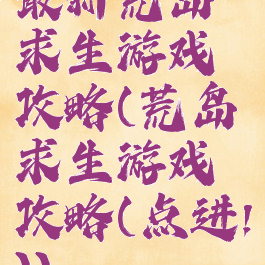 最新荒岛
求生游戏
攻略(荒岛
求生游戏
攻略(点进!
))